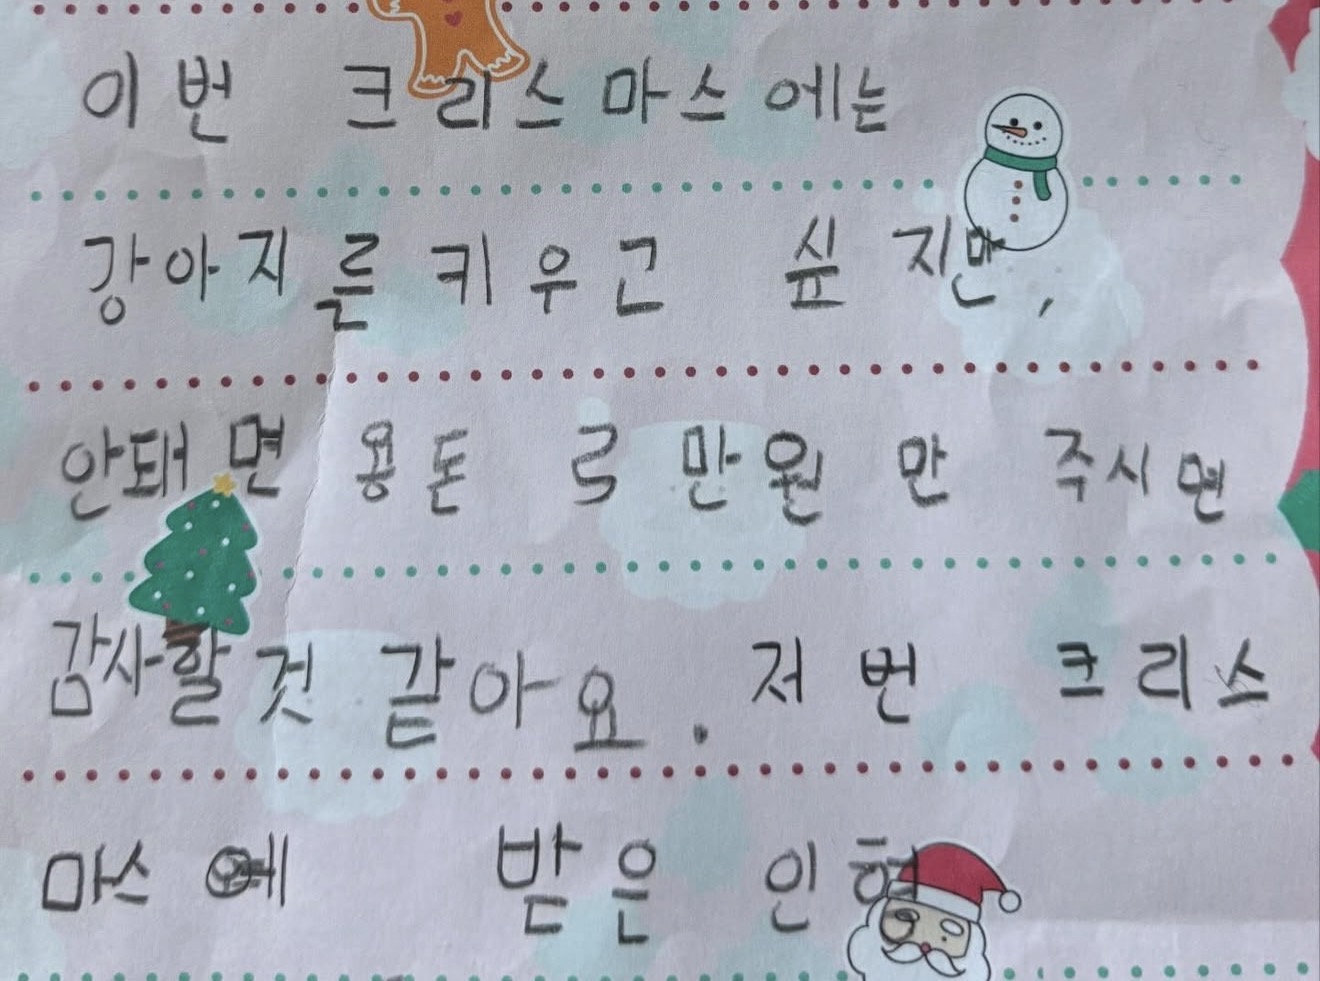 이번 크리스마스에는
강아지를 키우고 싶지만,
안돼면 용돈 만원만 주시면
감사할것 같아요. 저번 크리스
마스에 받은 인형